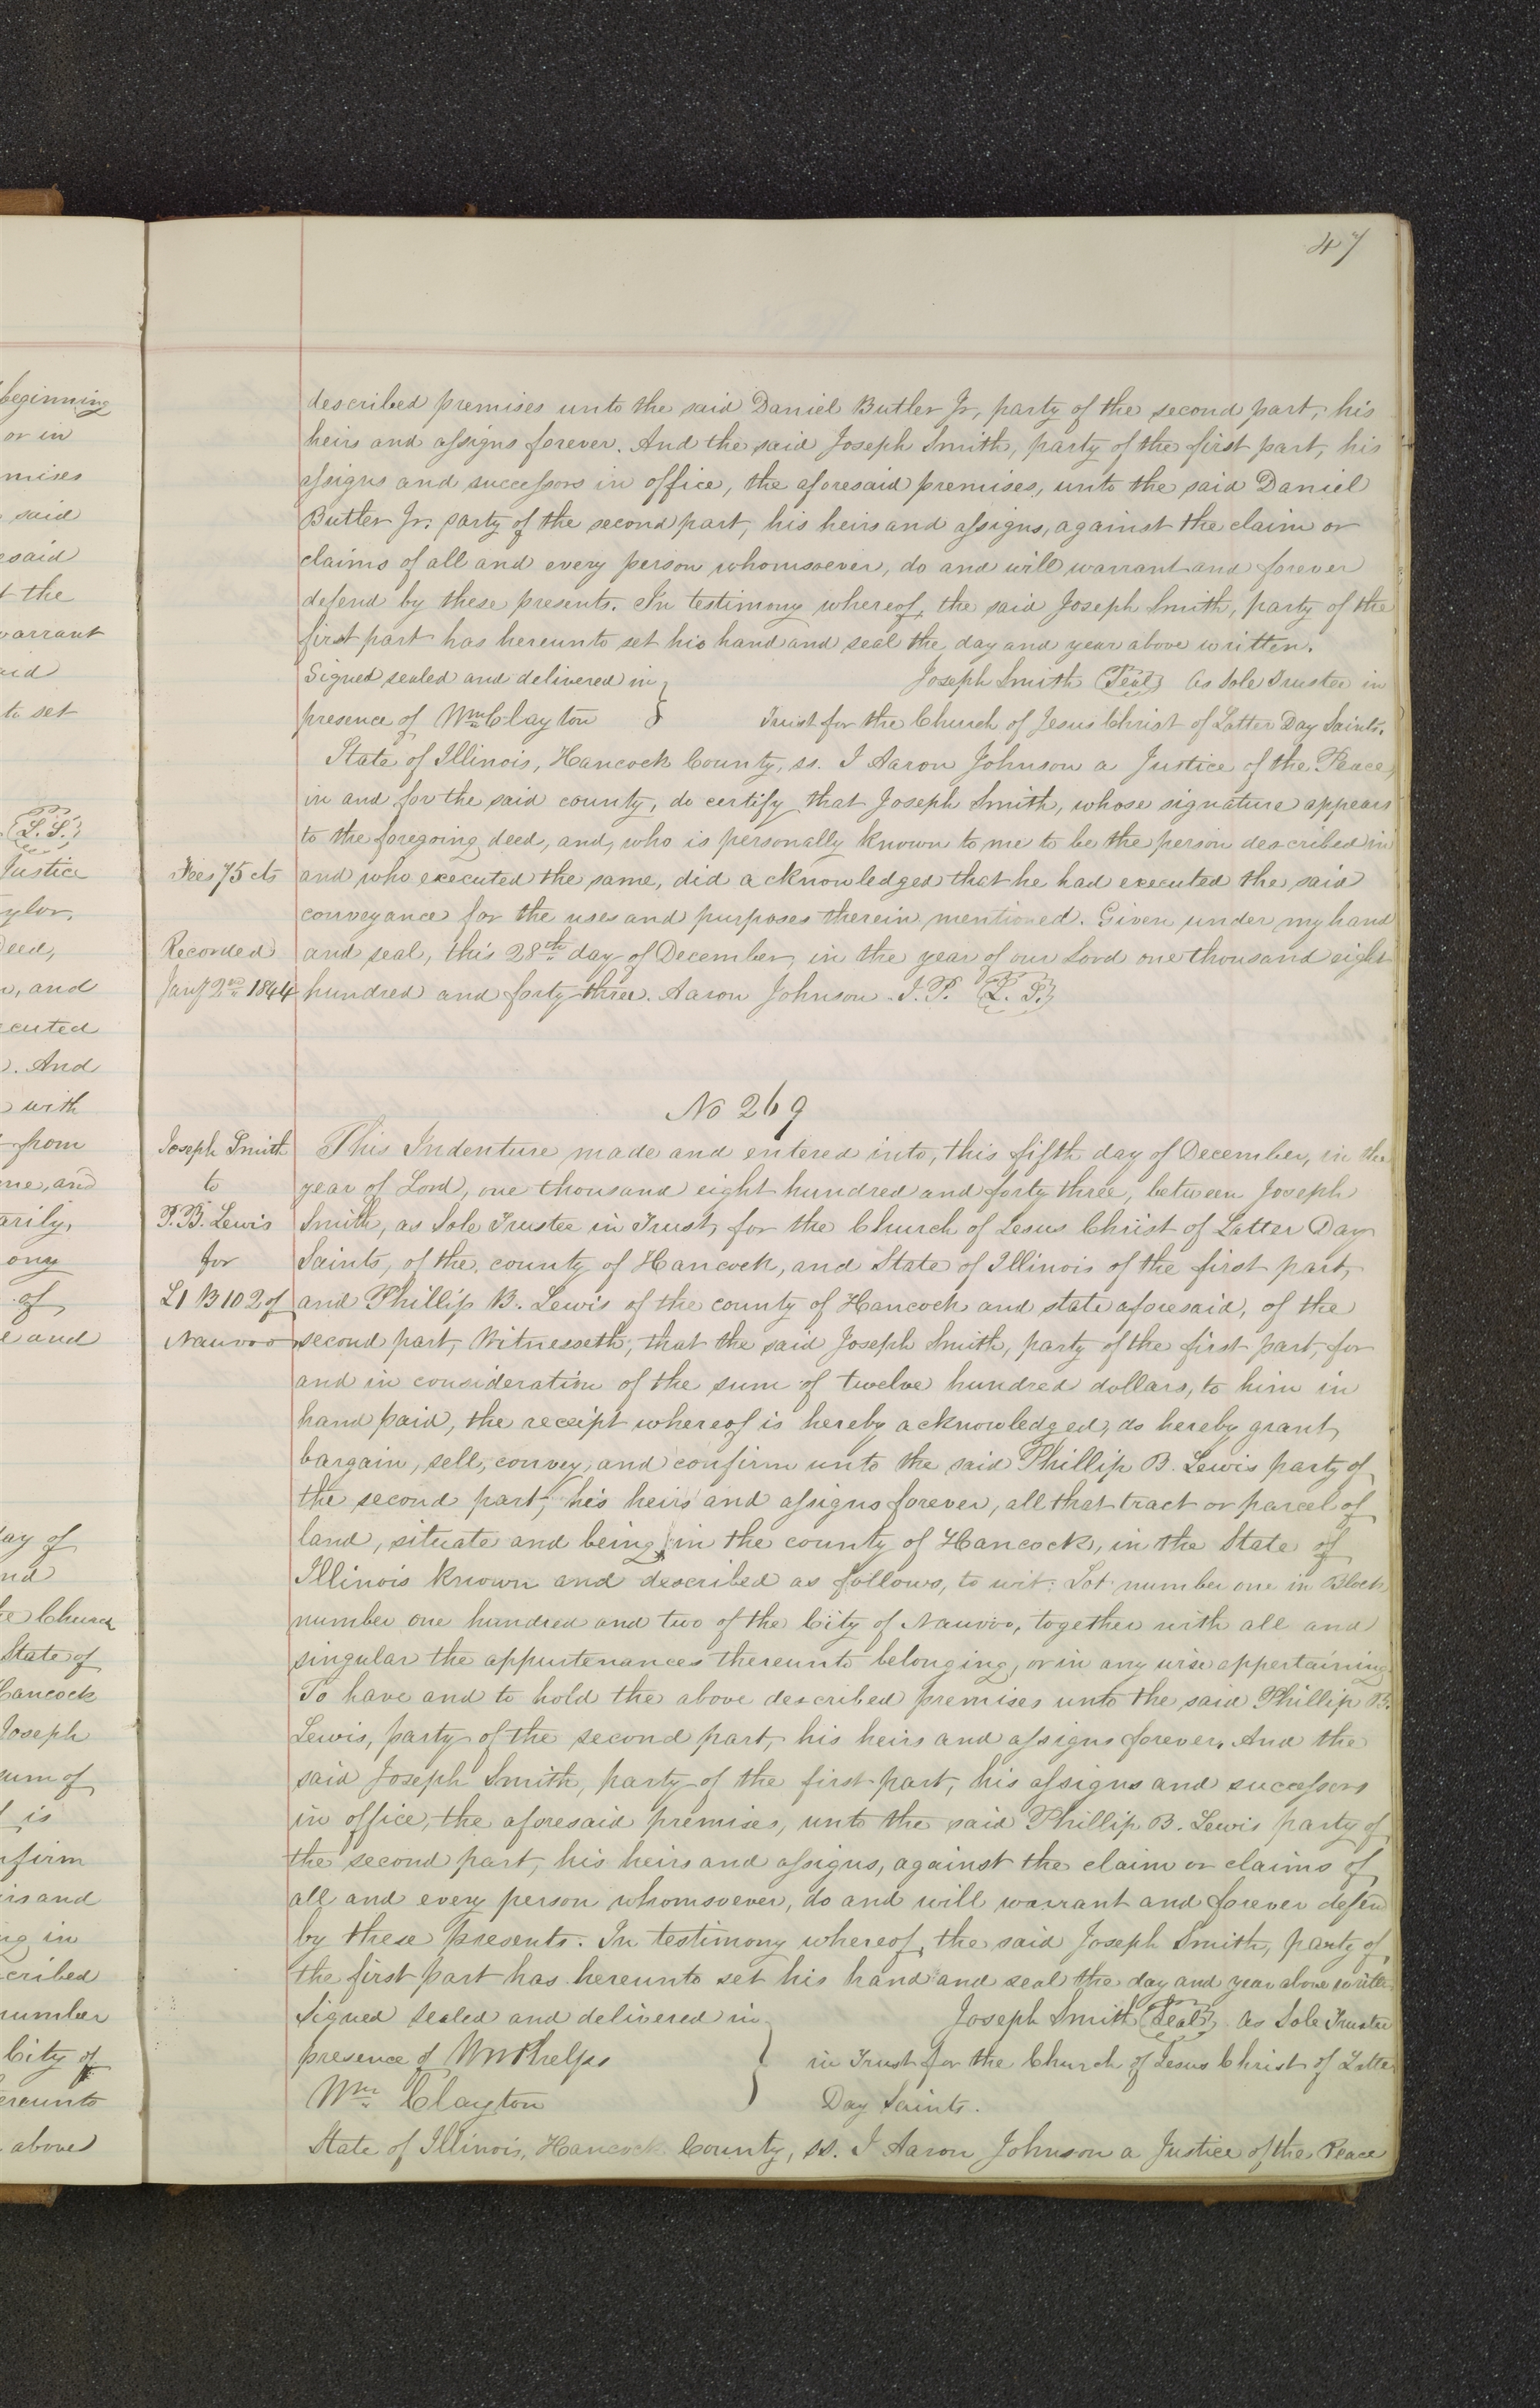 47
beginning
or in
mises
said
esaid
t the
warrant
aid
to set
L. S.
Justice
ylor,
Deed,
n, and
ecuted
. And
with
from
me, and
arily,
ong
of
e and
day of
nd
he Church
State of
Hancock
Joseph
sum of
is
nfirm
irs and
ng in
cribed
number
City of
ereunto
above
described premises unto the said Daniel Butler Jr, party of the second part, his
heirs and assigns forever. And the said Joseph Smith, party of the first part, his
assigns and successors in office, the aforesaid premises, unto the said Daniel
Butler Jr. party of the second part, his heirs and assigns, against the claim or
claims of all and every person whomsoever, do and will warrant and forever
defend by these presents. In testimony whereof, the said Joseph Smith, party of the
first part has hereunto set his hand and seal the day and year above written.
Signed sealed and delivered in } Joseph Smith (Seal) As Sole Trustee in
presence of Wm Clayton Trust for the Church of Jesus Christ of Latter Day Saints.
State of Illinois, Hancock County, ss. I Aaron Johnson a Justice of the Peace,
in and for the said county, do certify that Joseph Smith, whose signature appears
to the foregoing deed, and, who is personally known to me to be the person described in
Fees 75 cts and who executed the same, did acknowledged that he had executed the said
conveyance for the uses and purposes therein mentioned. Given under my hand
Recorded and seal, this 28th day of December, in the year of our Lord one thousand eight
Jany 2nd 1844 hundred and forty three. Aaron Johnson. J. P. (L. S.)
No 269
Joseph Smith This Indenture made and entered into, this fifth day of December, in the
to year of Lord, one thousand eight hundred and forty three, between Joseph
P. B. Lewis Smith, as Sole Trustee in Trust, for the Church of Jesus Christ of Latter Day
for Saints, of the county of Hancock, and State of Illinois of the first part,
L1 B 102 of and Phillip B. Lewis of the county of Hancock and state aforesaid, of the
Nauvoo second part, Witnesseth, that the said Joseph Smith, party of the first part, for
and in consideration of the sum of twelve hundred dollars, to him in
hand paid, the receipt whereof is hereby acknowledged, do hereby grant,
bargain, sell, convey, and confirm unto the said Phillip B. Lewis party of
the second part, his heirs and assigns forever, all that tract or parcel of
land, situate and being in the county of Hancock, in the State of
Illinois known and described as follows, to wit: Lot number one in Block
number one hundred and two of the City of Nauvoo, together with all and
singular the appurtenances thereunto belonging, or in any wise appertaining
To have and to hold the above described premises unto the said Phillip B.
Lewis, party of the second part, his heirs and assigns forever. And the
said Joseph Smith, party of the first part, his assigns and successors
in office, the aforesaid premises, unto the said Phillip B. Lewis party of
the second part, his heirs and assigns, against the claim or claims of
all and every person whomsoever, do and will warrant and forever defend
by these presents. In testimony whereof, the said Joseph Smith, party of
the first part has hereunto set his hand and seal the day and year above written
Signed sealed and delivered in } Joseph Smith (Seal) As Sole Trustee
presence of W W Phelps in Trust for the Church of Jesus Christ of Latter
Wm Clayton Day Saints.
State of Illinois, Hancock County, ss. I Aaron Johnson a Justice of the Peace